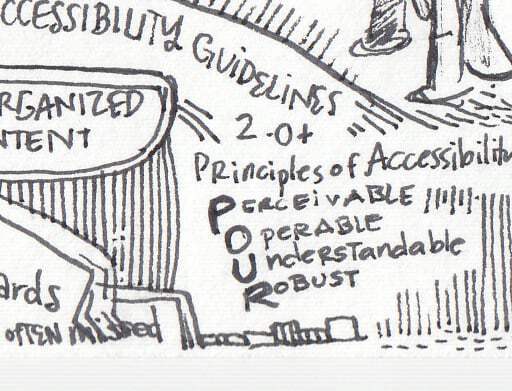 CCESSIBILITY GUIDELINES
2.0+
RGANIZED
NTENT
Principles of Accessibility
PERCEIVABLE
OPERABLE
UnderSTandable
ROBUST
ards
OFTEN missed